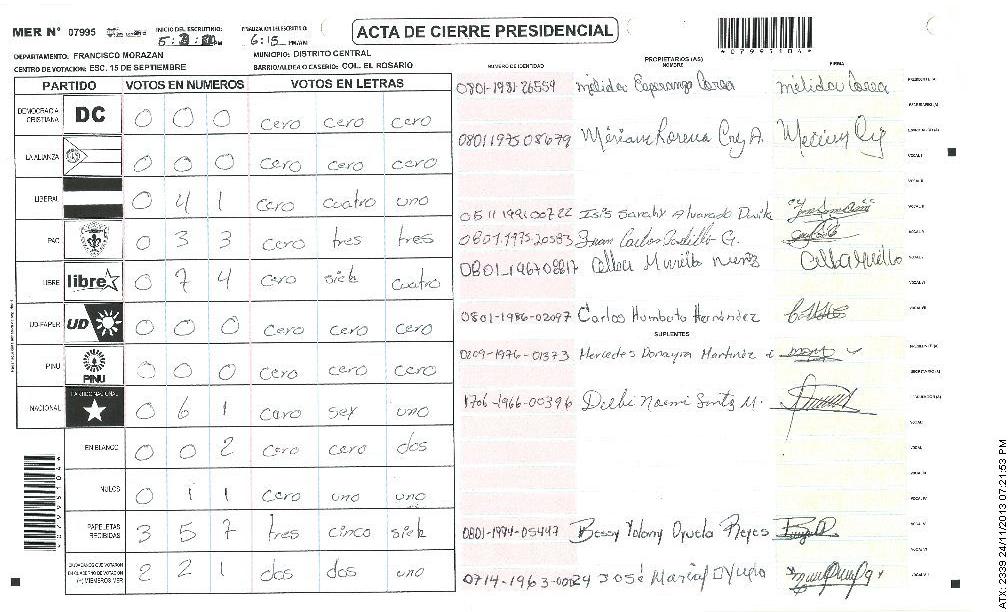 MER N° 07995 INICIO DEL ESCRUTINIO: FINALIZACION DEL ESCRUTINIO: 6:15 PM/AM
ACTA DE CIERRE PRESIDENCIAL
DEPARTAMENTO: FRANCISCO MORAZAN MUNICIPIO: DISTRITO CENTRAL
CENTRO DE VOTACION: ESC. 15 DE SEPTIEMBRE BARRIO/ALDEA O CASERIO: COL. EL ROSARIO
PARTIDO VOTOS EN NUMEROS VOTOS EN LETRAS
DEMOCRACIA CRISTIANA DC 0 0 0 cero cero cero
LA ALIANZA 0 0 0 cero cero cero
LIBERAL 0 4 1 cero cuatro uno
PAC 0 3 3 cero tres tres
LIBRE libre 0 7 4 cero siete cuatro
UD-FAPER UD 0 0 0 cero cero cero
PINU PINU 0 0 0 cero cero cero
NACIONAL PARTIDO NACIONAL 0 6 1 cero sey uno
EN BLANCO 0 0 2 cero cero dos
NULOS 0 1 1 cero uno uno
PAPELETAS RECIBIDAS 3 5 7 tres cinco siete
CIUDADANOS QUE VOTARON EN CUADERNO DE VOTACION (+) MIEMBROS MER 2 2 1 dos dos uno
*07995104*
PROPIETARIOS (AS)
NUMERO DE IDENTIDAD NOMBRE FIRMA
0801-1981-26559 mélida Esperanza Correa mélida Correa
0801197508679 Miriam Lorena Cruz A.
0511199100722 Isis Sarahy Alvarado
0801-1975-20583 Juan Carlos Padilla G.
0801-1967-08817 Murillo Nuñez
0801-1986-02097 Carlos Humberto Hernández
SUPLENTES
0209-1976-01373 Mercedes Martinez
1706-1966-00396 Noemi M.
0801-1994-05447 Bessy Yolany Oyuela Reyes
0714-1963-00024 José
ATX: 2339 24/11/2013 07:21:53 PM